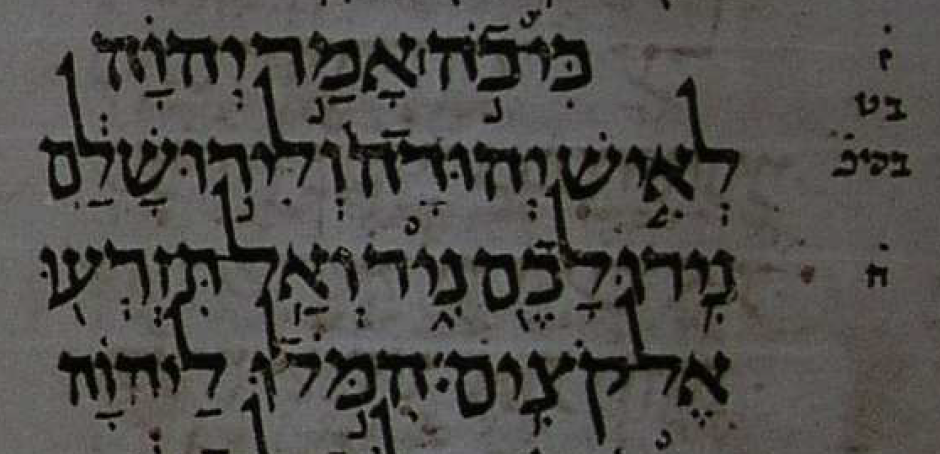 כִּי כֹה אָמַר יְהוָֹה ז
בט
לְאִישׁ יְהוּדָה וְלִירוּשָׁלַםִ
נִירוּ לָכֶם נִיר וְאַל תִּזְרְעוּ ח
אֶל קֹצִים׃ הִמֹּלוּ לַיהוָֹה